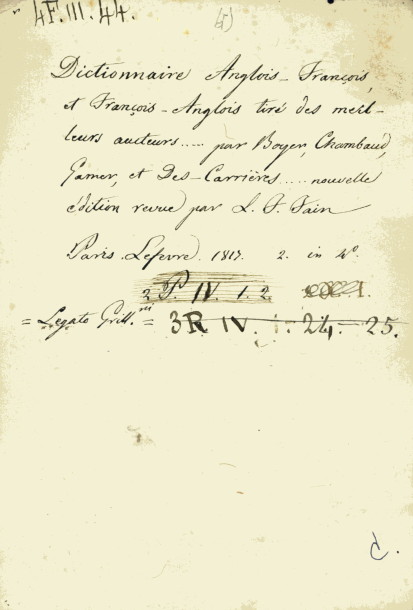 4F.III.44. (5)
Dictionnaire Anglois-François,
et François-Anglois tiré des meil-
leurs aucteurs..... par Boyer, Chambaud,
Garner, et Des-Carrières..... nouvelle
édition revue par L. F. Fain
Paris. Lefevre. 1817. 2. in 4°.
2 P. IV. 1. 2.
= Legato Grill.ni = 3 R IV. 1. 24. 25.
C.